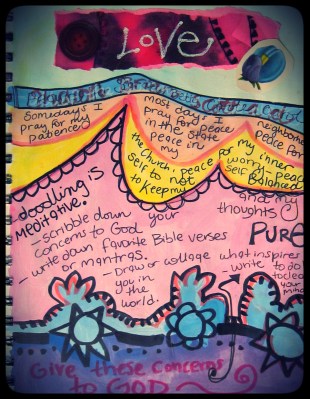 LOVE
Somedays I
pray for my
patience
most days I
pray for peace
in the state
peace in
my
neighborhood
peace for
the Church, peace for my inner
self to not worry - peace
to keep my self balanced
and my
thoughts
PURE
doodling is
MEDITATIVE.
- scribble down your
concerns to God
- write down favorite Bible verses
or mantras.
- Draw or collage what inspires
you in
the
world.
- write to do
to clear
your
mind
Give these concerns
to GOD